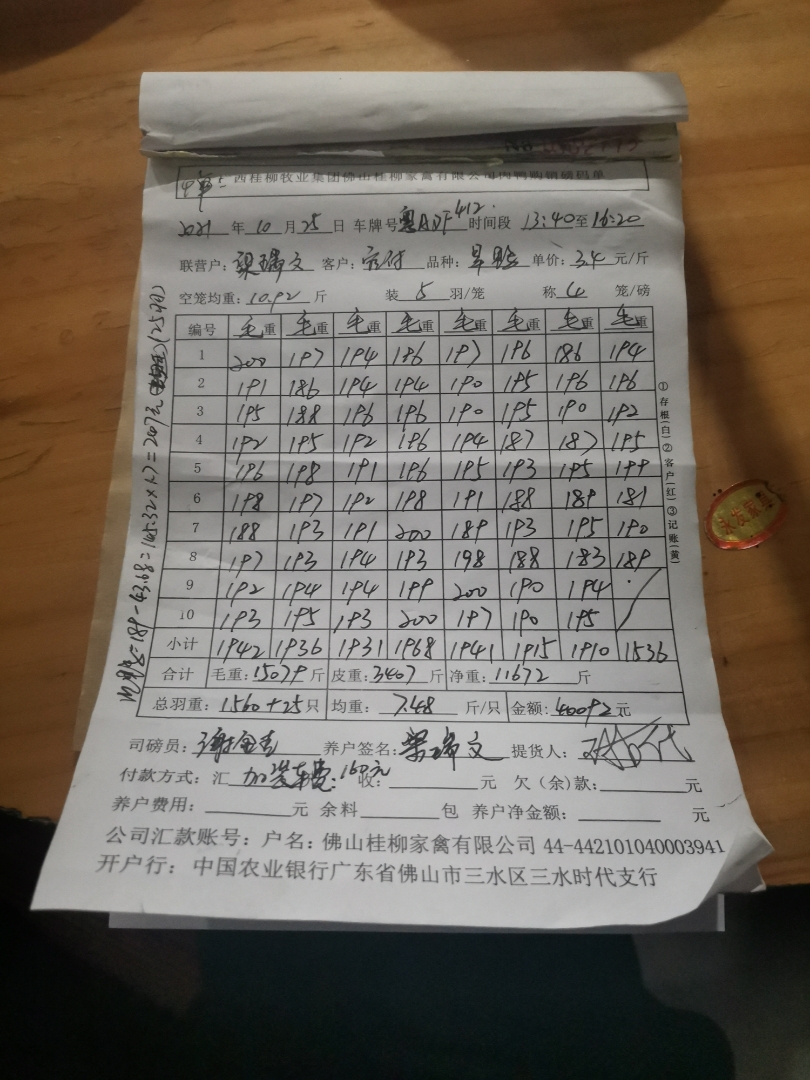 西桂柳牧业集团佛山桂柳家禽有限公司肉鸭购销磅码单
2021 年 10 月 25 日 车牌号 粤ADF412 时间段 13:40 至 16:20
联营户: 梁瑞文 客户: 品种: 单价: 3.4 元/斤
空笼均重: 10.92 斤 装 5 羽/笼 称 4 笼/磅
编号 毛重 毛重 毛重 毛重 毛重 毛重 毛重 毛重
1 200 197 194 196 197 196 186 194
2 191 186 194 194 190 195 196 196
3 195 188 196 196 190 195 190 192
4 192 195 192 196 194 187 187 195
5 196 198 191 196 195 193 195 199
6 198 197 192 198 191 188 189 181
7 188 193 191 200 189 193 195 190
8 197 193 194 193 198 188 183 189
9 192 194 194 199 200 190 194
10 193 195 193 200 197 190 195
小计 1942 1936 1931 1968 1941 1915 1910 1536
合计 毛重: 15079 斤 皮重: 3407 斤 净重: 11672 斤
总羽重: 1560+25 只 均重: 7.48 斤/只 金额: 40092 元
司磅员: 养户签名: 梁瑞文 提货人:
付款方式: 汇 加装车费: 160元 收: 元 欠(余)款: 元
养户费用: 元 余料 包 养户净金额: 元
公司汇款账号: 户名: 佛山桂柳家禽有限公司 44-442101040003941
开户行: 中国农业银行广东省佛山市三水区三水时代支行
①存根(白)②客户(红)③记账(黄)
=189-43.68=145.32×1.7=247元 (25只)